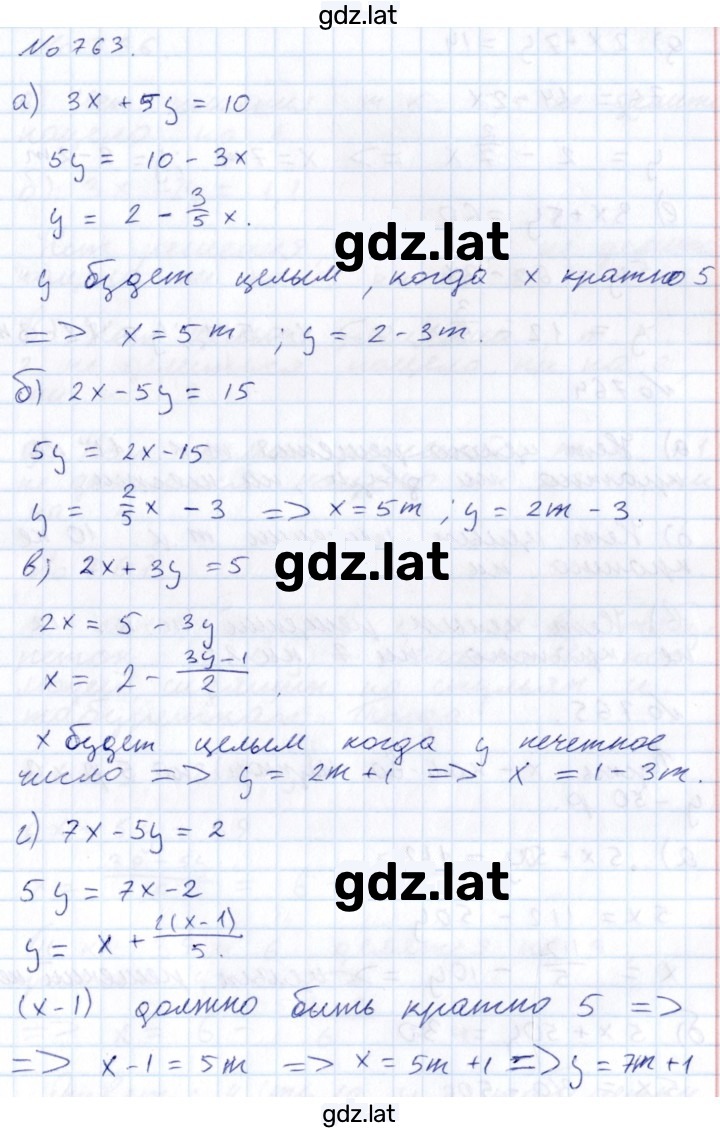 gdz.lat
№ 763.
а) 3x + 5y = 10
5y = 10 - 3x
y = 2 - 3/5 x.
gdz.lat
y будет целым, когда x кратно 5
=> x = 5m ; y = 2 - 3m.
б) 2x - 5y = 15
5y = 2x - 15
y = 2/5 x - 3 => x = 5m ; y = 2m - 3.
в) 2x + 3y = 5
gdz.lat
2x = 5 - 3y
x = 2 - (3y - 1)/2
x будет целым когда y нечетное
число => y = 2m + 1 => x = 1 - 3m.
г) 7x - 5y = 2
5y = 7x - 2
gdz.lat
y = x + 2(x-1)/5.
(x-1) должно быть кратно 5 =>
=> x - 1 = 5m => x = 5m + 1 => y = 7m + 1
gdz.lat